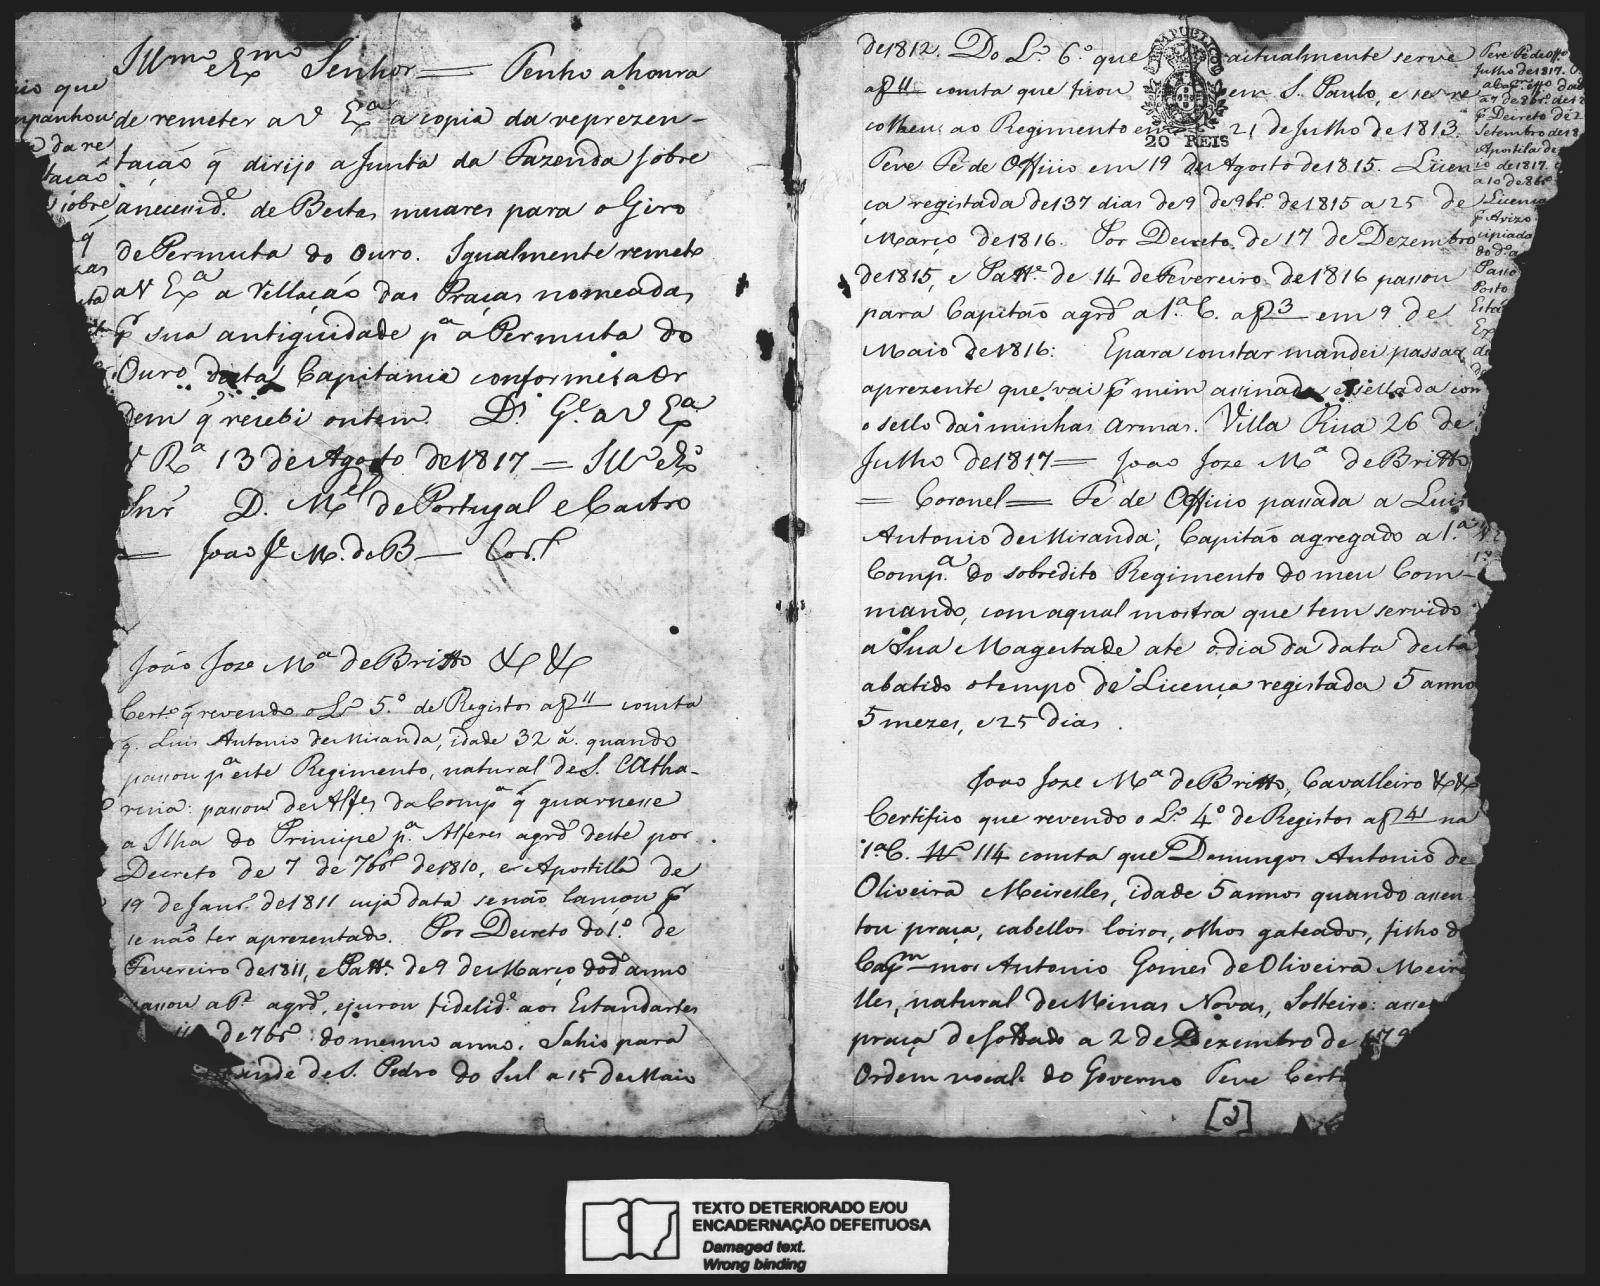 Illmo e Exmo Senhor = Tenho a honra
de remeter a V Exa a copia da reprezen-
tação q̃ dirijo a Junta da Fazenda sobre
a necessid.e de Bestas muares para o Giro
de Permuta do Ouro. Igualmente remeto
a V Exa a Rellação das Praças nomeadas
p̃ sua antiguidade pa a Permuta do
Ouro desta Capitania conforme a Or
dem q̃ recebi ontem. Ds Ge a V Exa
V Ra 13 de Agosto de 1817 = Illo e Exo
Snr D. Mel de Portugal e Castro
= João Je M. de B — Cor.l
io que
panhou
da re
tação
sobre
q̃
João Joze Ma de Britto & &
Certo q̃ revendo o Lo 5.o de Registos a f 11 consta
q̃. Luis Antonio de Miranda, idade 32 a. quando
passou pa este Regimento, natural de S. Catha-
rina: passou de Alfes da Compa q̃ guarnesse
a Ilha do Principe pa Alferes agrdo deste por
Decreto de 7 de 7bro de 1810, e Apostilla de
19 de Janro de 1811 cuja data se não lançou p̃
se não ter aprezentado. Por Decreto do 1.o de
Fevereiro de 1811, e Patte de 9 de Março do do anno
passou a Pe agrdo, e jurou fidelide aos Estandartes
de 7bro do mesmo anno. Sahio para
ande de S. Pedro do Sul a 15 de Maio
de 1812. Do Lo 6.o que actualmente serve
a f 11 consta que ficou em S. Paulo, e se re
colheu ao Regimento em 21 de Julho de 1813.
20 REIS
Teve Fé de Officio em 19 de Agosto de 1815. Licen
ça registada de 137 dias de 9 de 9bro de 1815 a 25 de
Março de 1816. Por Decreto de 17 de Dezembro
de 1815, e Patte de 14 de Fevereiro de 1816 passou
para Capitão agrdo a 1.a C. a f 3 em 9 de
Maio de 1816: E para constar mandei passar
a prezente que vai p̃ mim assinada e sellada com
o sello das minhas Armas. Villa Rica 26 de
Julho de 1817 = João Joze Ma de Britto
= Coronel = Fé de Officio passada a Luis
Antonio de Miranda, Capitão agregado a 1.a
Comp.a do sobredito Regimento do meu Com-
mando, com a qual mostra que tem servido
a Sua Magestade até o dia da data desta
abatido o tempo de Licença registada 5 annos
5 mezes, e 25 dias.
Teve Fé de Offo
Julho de 1817.
a 7 de 8bro de 12
p̃ Decreto de 2
Setembro de 18
Apostila de
de 1817
a 10 de 8bro
Licença
p̃ Avizo
do do a
Passo
Posto
Está
João Joze Ma de Britto, Cavalleiro & &
Certifico que revendo o Lo 4o de Registos a f 41 na
1a C. No 114 consta que Domingos Antonio de
Oliveira Meirelles, idade 5 annos quando assen
tou praça, cabellos loiros, olhos gateados, filho do
Capm mor Antonio Gomes de Oliveira Meire
lles, natural de Minas Novas, Solteiro: assen
praça de Soldado a 2 de Dezembro de 179
Ordem vocal do Governo Teve Cert
[2]
TEXTO DETERIORADO E/OU
ENCADERNAÇÃO DEFEITUOSA
Damaged text.
Wrong binding